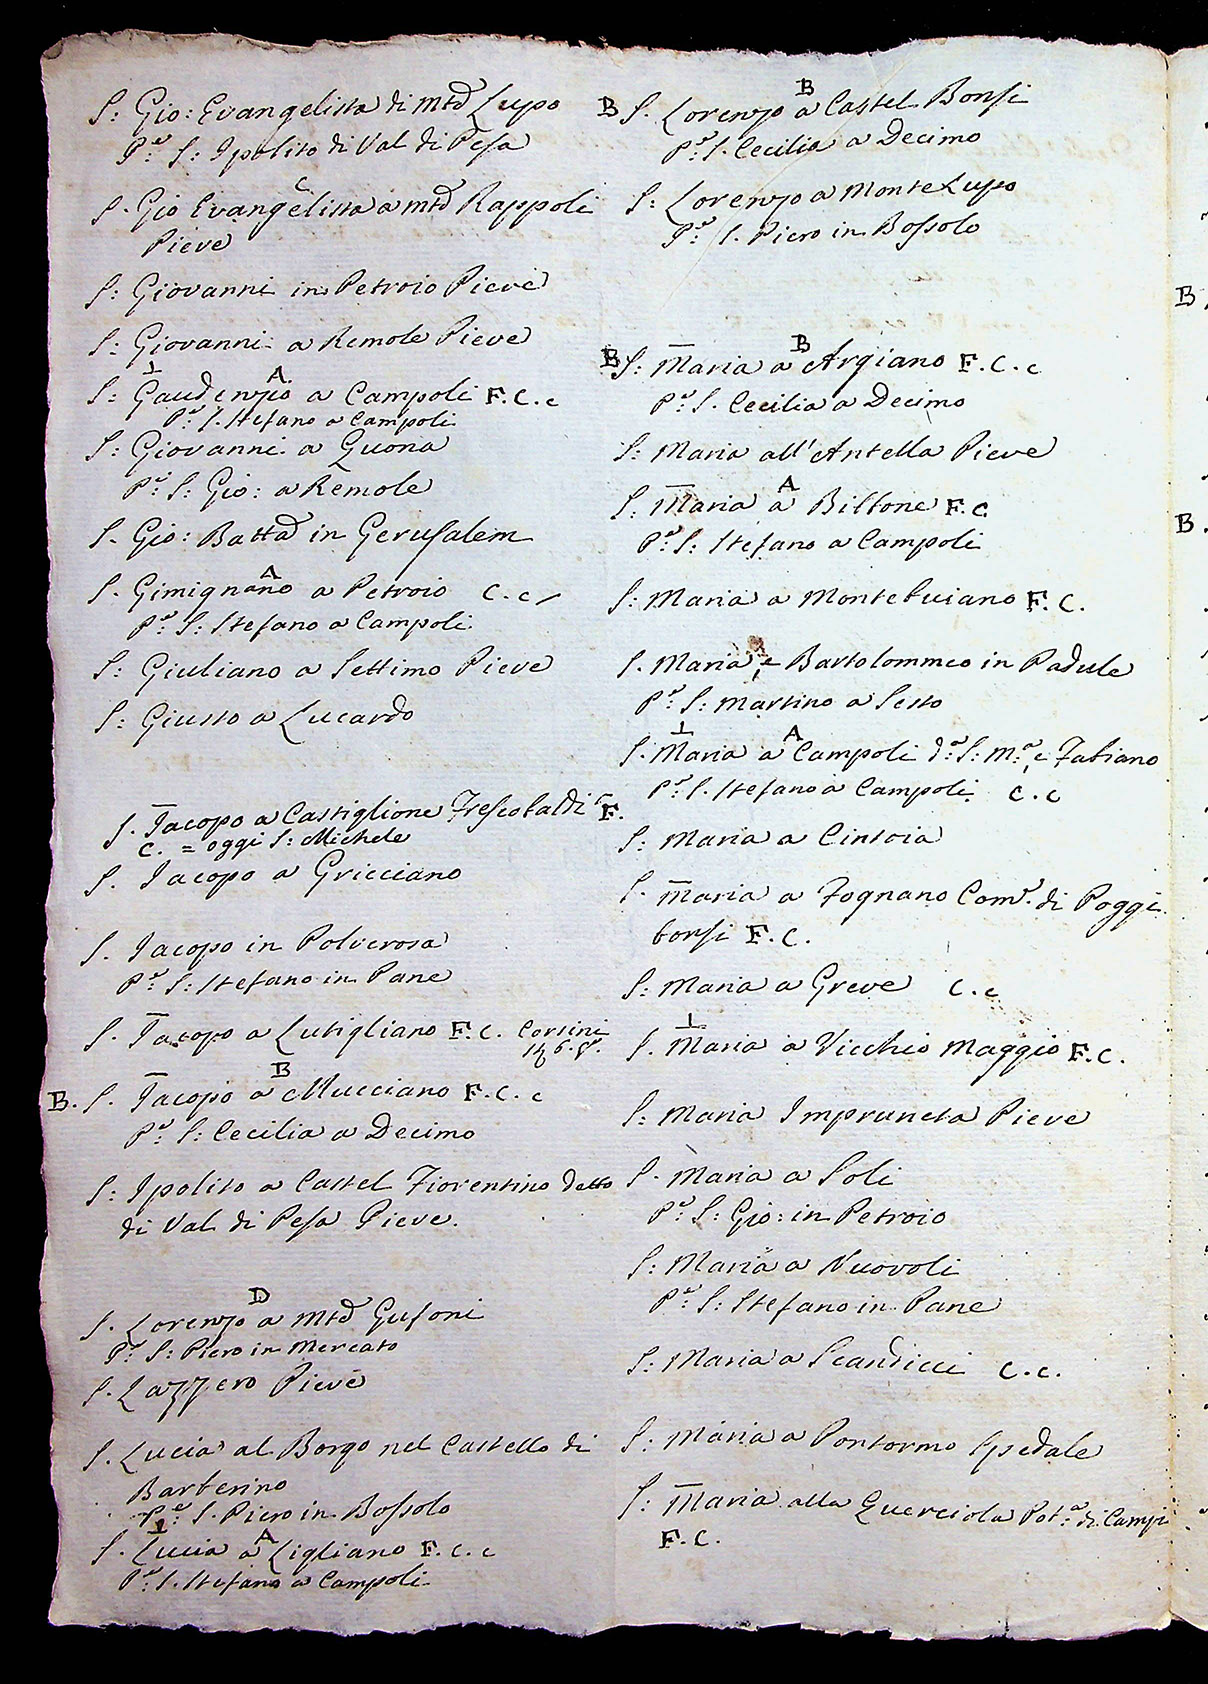 S: Gio: Evangelista di Mte Lupo
Pe: S: Ipolito di Val di Pesa
C
S. Gio Evangelista a Mte Rappoli
Pieve
S: Giovanni in Petroio Pieve
S: Giovanni a Remole Pieve
A
S: Gaudenzio a Campoli F. C. c
Pe: S. Stefano a Campoli
S: Giovanni a Quona
Pe: S: Gio: a Remole
S. Gio: Batta in Gerusalem
A
S. Gimignano a Petroio C. c
Pe: S: Stefano a Campoli
S: Giuliano a Settimo Pieve
S: Giusto a Lucardo
S. Iacopo a Castiglione Frescobaldi F.
C. = oggi S: Michele
S. Iacopo a Gricciano
S. Iacopo in Polverosa
Pe: S: Stefano in Pane
S. Iacopo a Lutigliano F. C. Corsini
B
B. S. Iacopo a Mucciano F. C. c
Pe: S: Cecilia a Decimo
S: Ipolito a Castel Fiorentino detto
di Val di Pesa Pieve.
D
S. Lorenzo a Mte Gufoni
Pe: S: Piero in Mercato
S. Lazzero Pieve
S. Lucia al Borgo nel Castello di
Barberino
Pe: S. Piero in Bossolo
A
S. Lucia a Ligliano F. C. c
Pe: S. Stefano a Campoli
B
B S. Lorenzo a Castel Bonsi
Pe: S. Cecilia a Decimo
S: Lorenzo a Monte Lupo
Pe: S. Piero in Bossolo
B
B S: Maria a Argiano F. C. c
Pe: S. Cecilia a Decimo
S: Maria all'Antella Pieve
A
S: Maria a Bibbone F. C.
Pe: S: Stefano a Campoli
S: Maria a Montebuiano F. C.
S. Maria, e Bartolommeo in Padule
Pe: S: Martino a Sesto
A
S. Maria a Campoli da: S: Ma: e Fabiano
Pe: S. Stefano a Campoli C. c
S: Maria a Cintoia
S. Maria a Fognano Come. di Poggi
bonsi F. C.
S: Maria a Greve C. c
S. Maria a Vicchio Maggio F. C.
S: Maria Impruneta Pieve
S. Maria a Soli
Pe: S: Gio: in Petroio
S: Maria a Nuovoli
Pe: S: Stefano in Pane
S: Maria a Scandicci C. c.
S: Maria a Pontormo Spedale
S: Maria alla Querciola Pota: di Campi
F. C.
B
B.